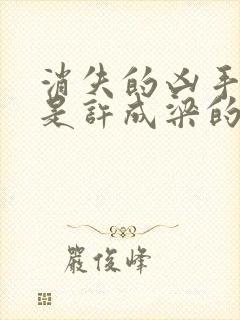 消失的凶手
是許成梁的
嚴俊峰